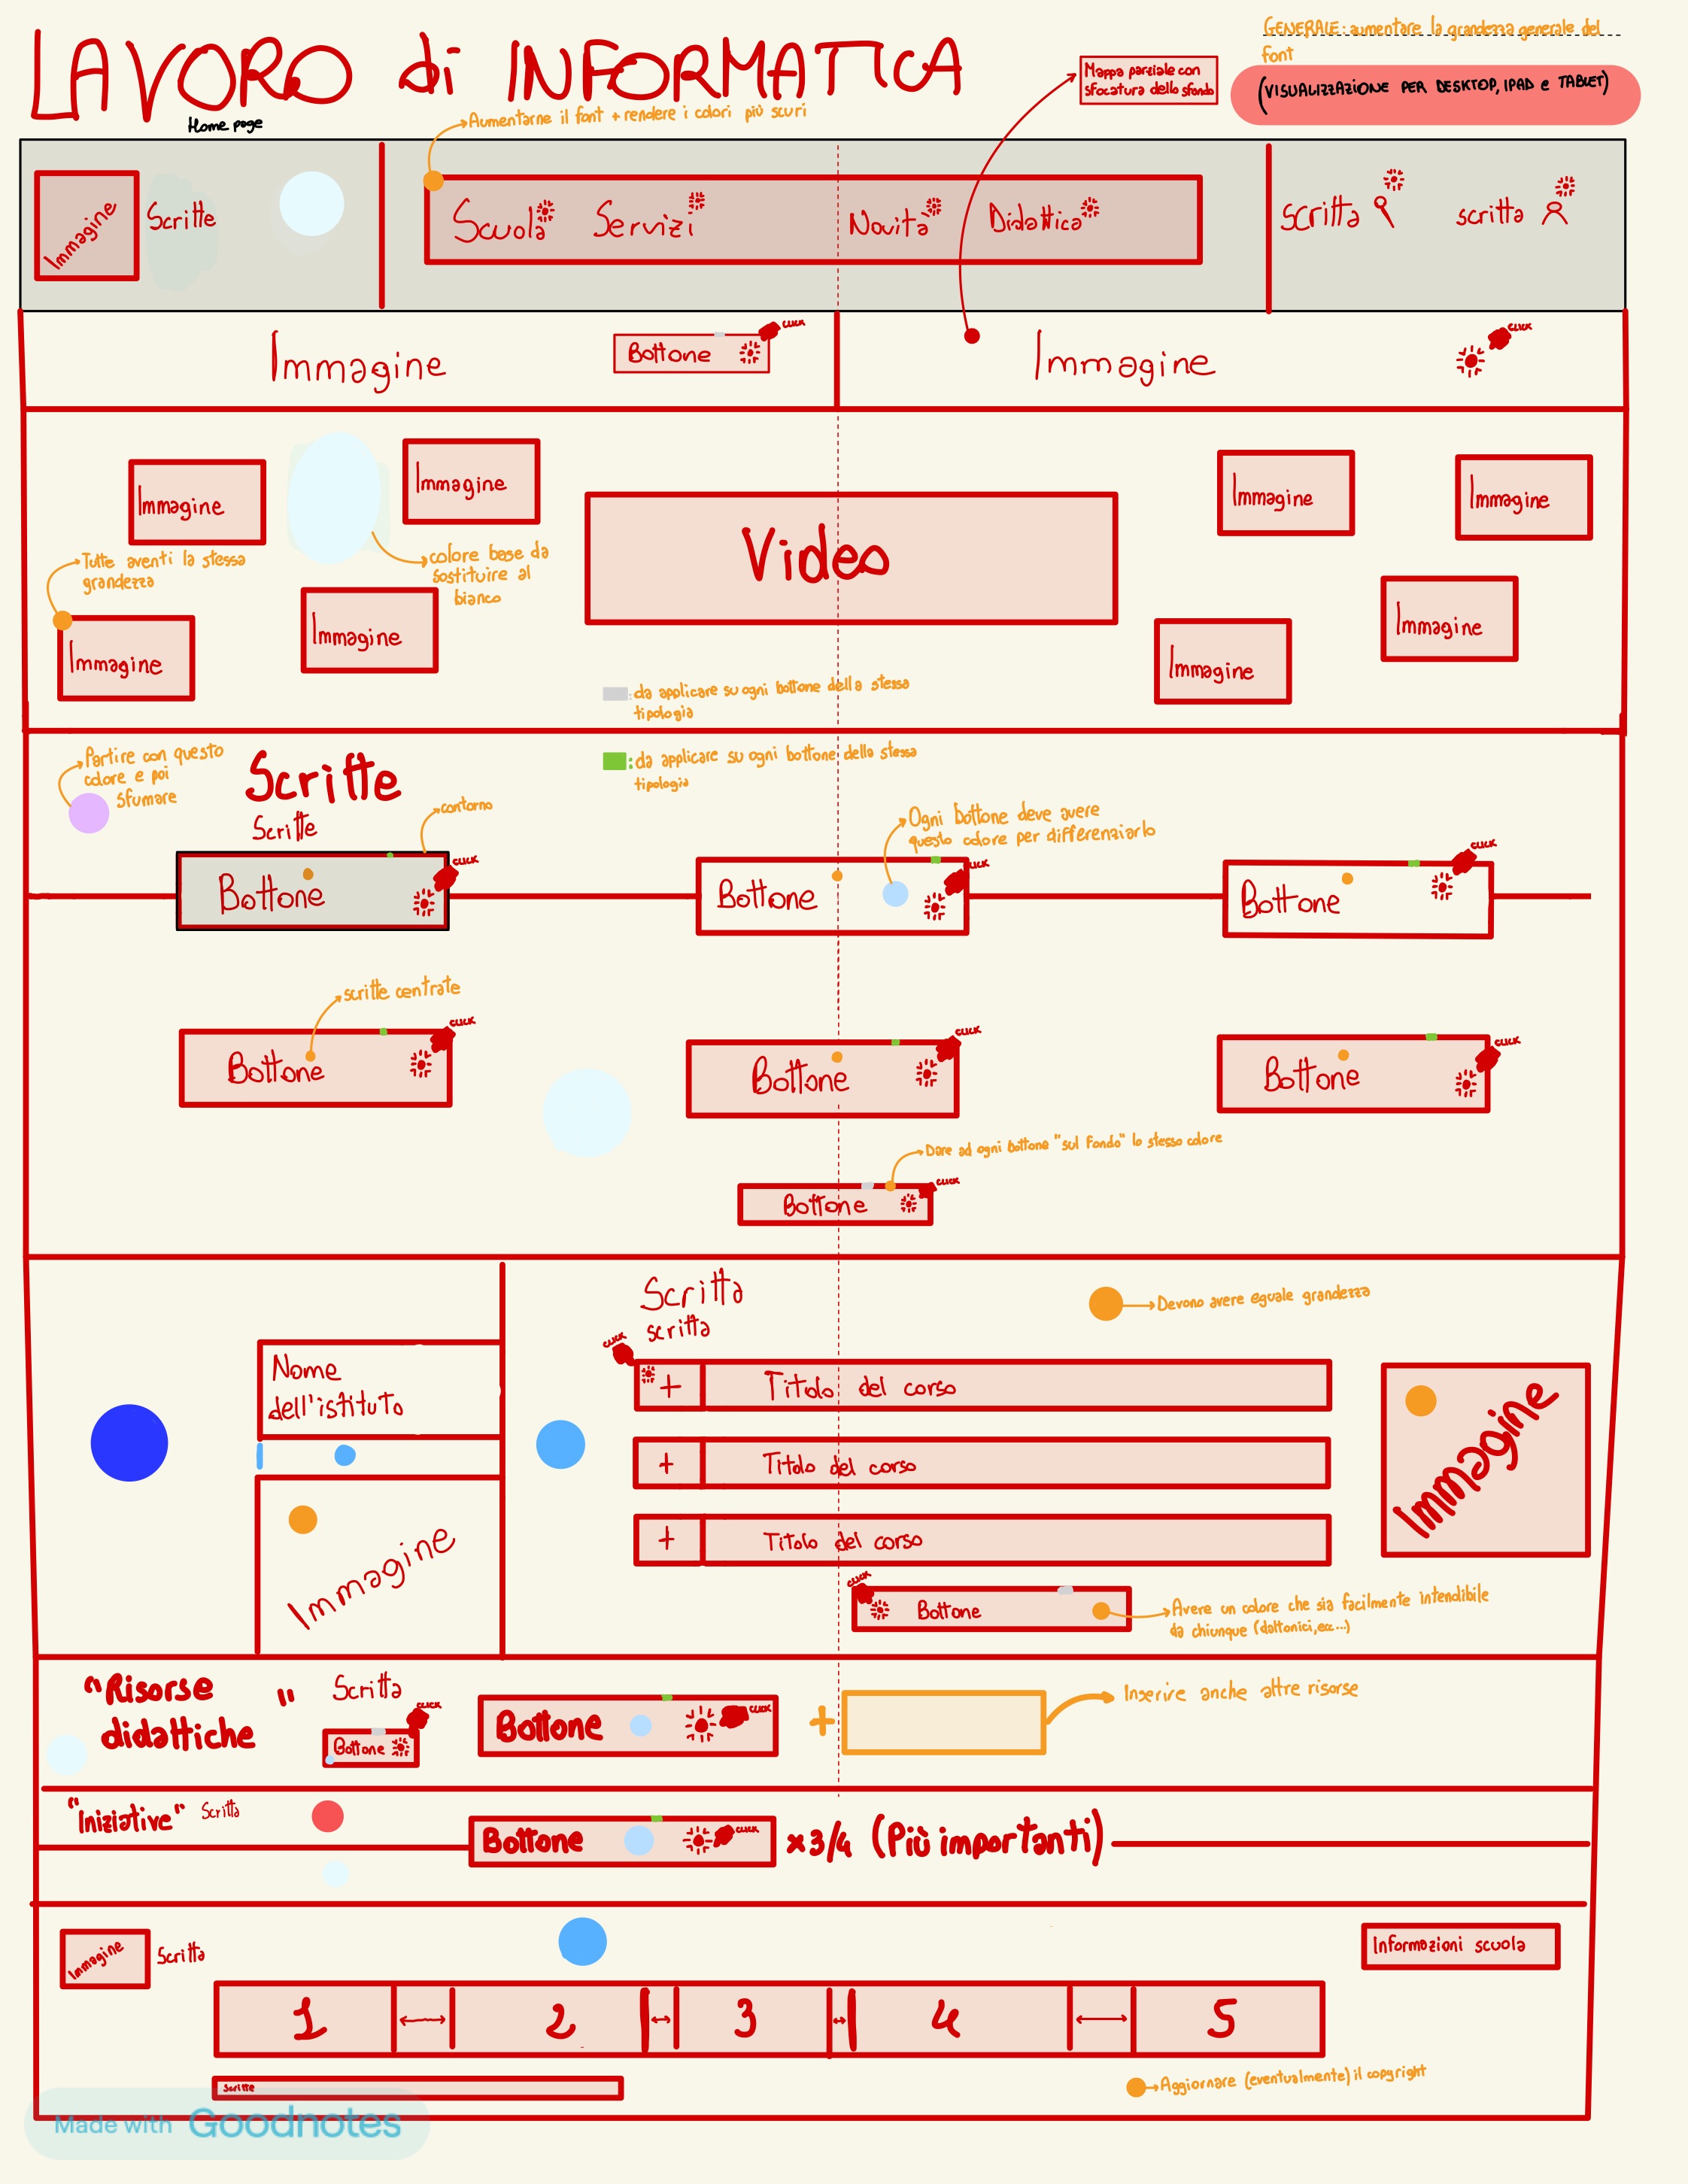 LAVORO di INFORMATICA
Home page
GENERALE: aumentare la grandezza generale del
font
(VISUALIZZAZIONE PER DESKTOP, IPAD e TABLET)
Mappa parziale con
sfocatura dello sfondo
Aumentarne il font + rendere i colori più scuri
Immagine
Scritte
Scuola
Servizi
Novità
Didattica
scritta
scritta
Immagine
Bottone
CLICK
Immagine
CLICK
Immagine
Immagine
Immagine
Immagine
Video
Immagine
Immagine
Immagine
Immagine
Tutte aventi la stessa
grandezza
colore base da
sostituire al
bianco
: da applicare su ogni bottone della stessa
tipologia
Partire con questo
colore e poi
sfumare
Scritte
Scritte
: da applicare su ogni bottone della stessa
tipologia
contorno
Ogni bottone deve avere
questo colore per differenziarlo
Bottone
CLICK
Bottone
CLICK
Bottone
CLICK
scritte centrate
Bottone
CLICK
Bottone
CLICK
Bottone
CLICK
Dare ad ogni bottone "sul fondo" lo stesso colore
Bottone
CLICK
Nome
dell'istituto
Immagine
Scritta
scritta
Devono avere eguale grandezza
CLICK
+ Titolo del corso
+ Titolo del corso
+ Titolo del corso
Immagine
CLICK
Bottone
Avere un colore che sia facilmente intendibile
da chiunque (daltonici, ecc...)
"Risorse
didattiche"
Scritta
Bottone
CLICK
Bottone
CLICK
+
Inserire anche altre risorse
"Iniziative"
Scritta
Bottone
CLICK
x3/4 (Più importanti)
Immagine
Scritta
Informazioni scuola
1 2 3 4 5
Scritte
Aggiornare (eventualmente) il copyright
Made with Goodnotes